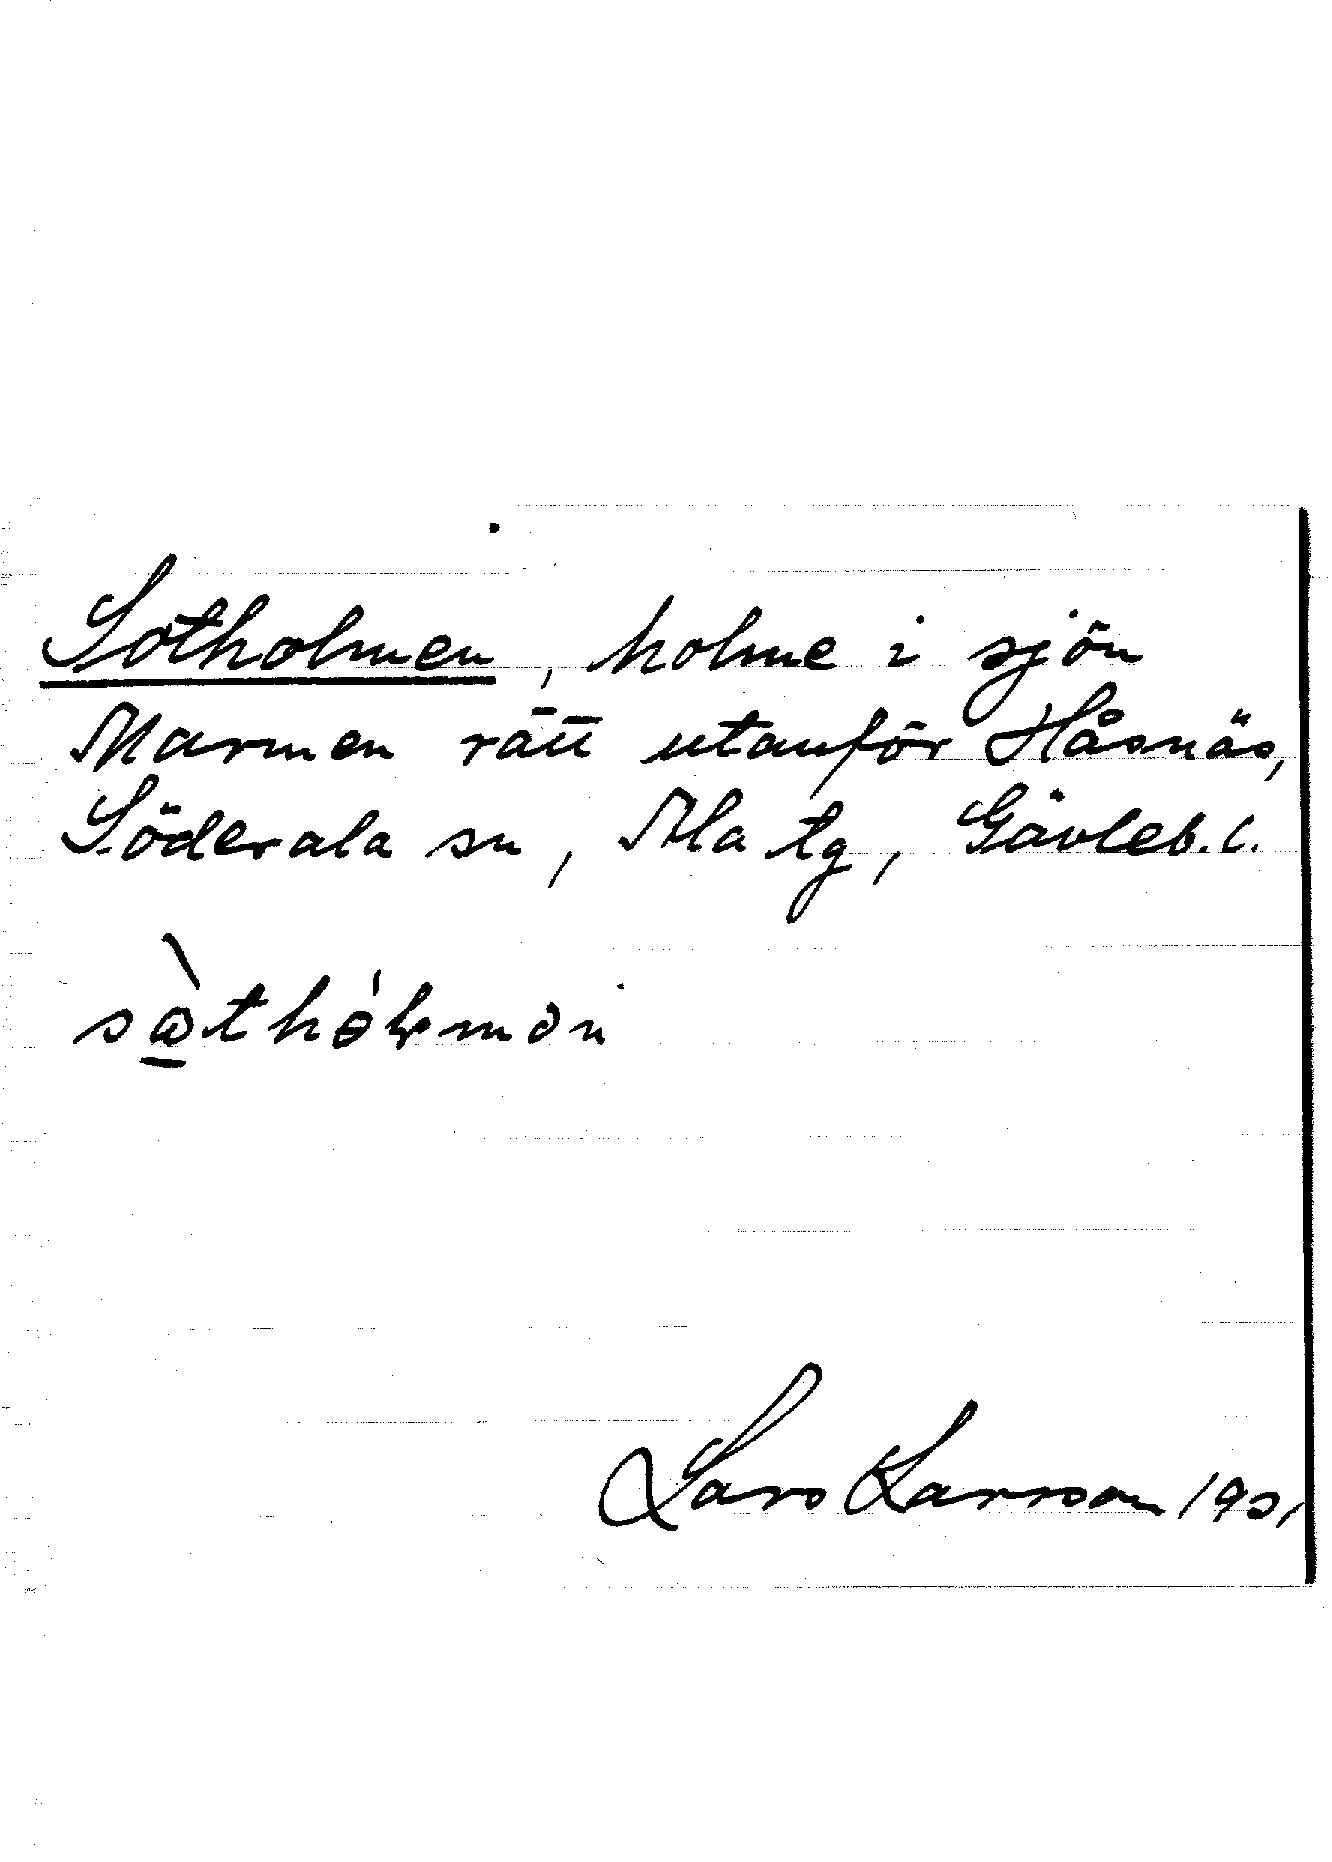 Sotholmen, holme i sjön
Marmen rätt utanför Håsnäs,
Söderala sn, Ala tg, Gävleb. l.
Lars Larsson